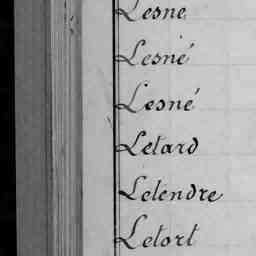 Lesne
Lesné
Lesné
Letard
Letendre
Letort